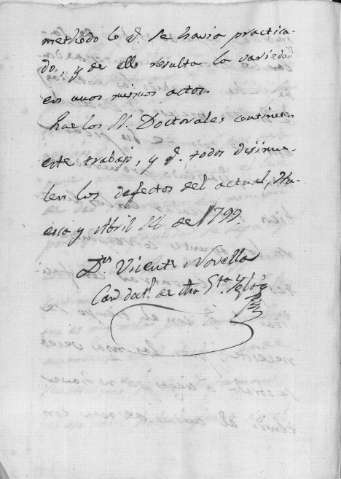 methodo lo q. se havia practica-
do, y de ello resulta la variedad
en unos mismos actos.
los SS. Doctorales continuen
este trabajo, y q. todos disimu-
len los defectos del actual, Hu-
esca y Abril 14 de 1792.
Dn Vicente Novella
de dha Sta Yglª